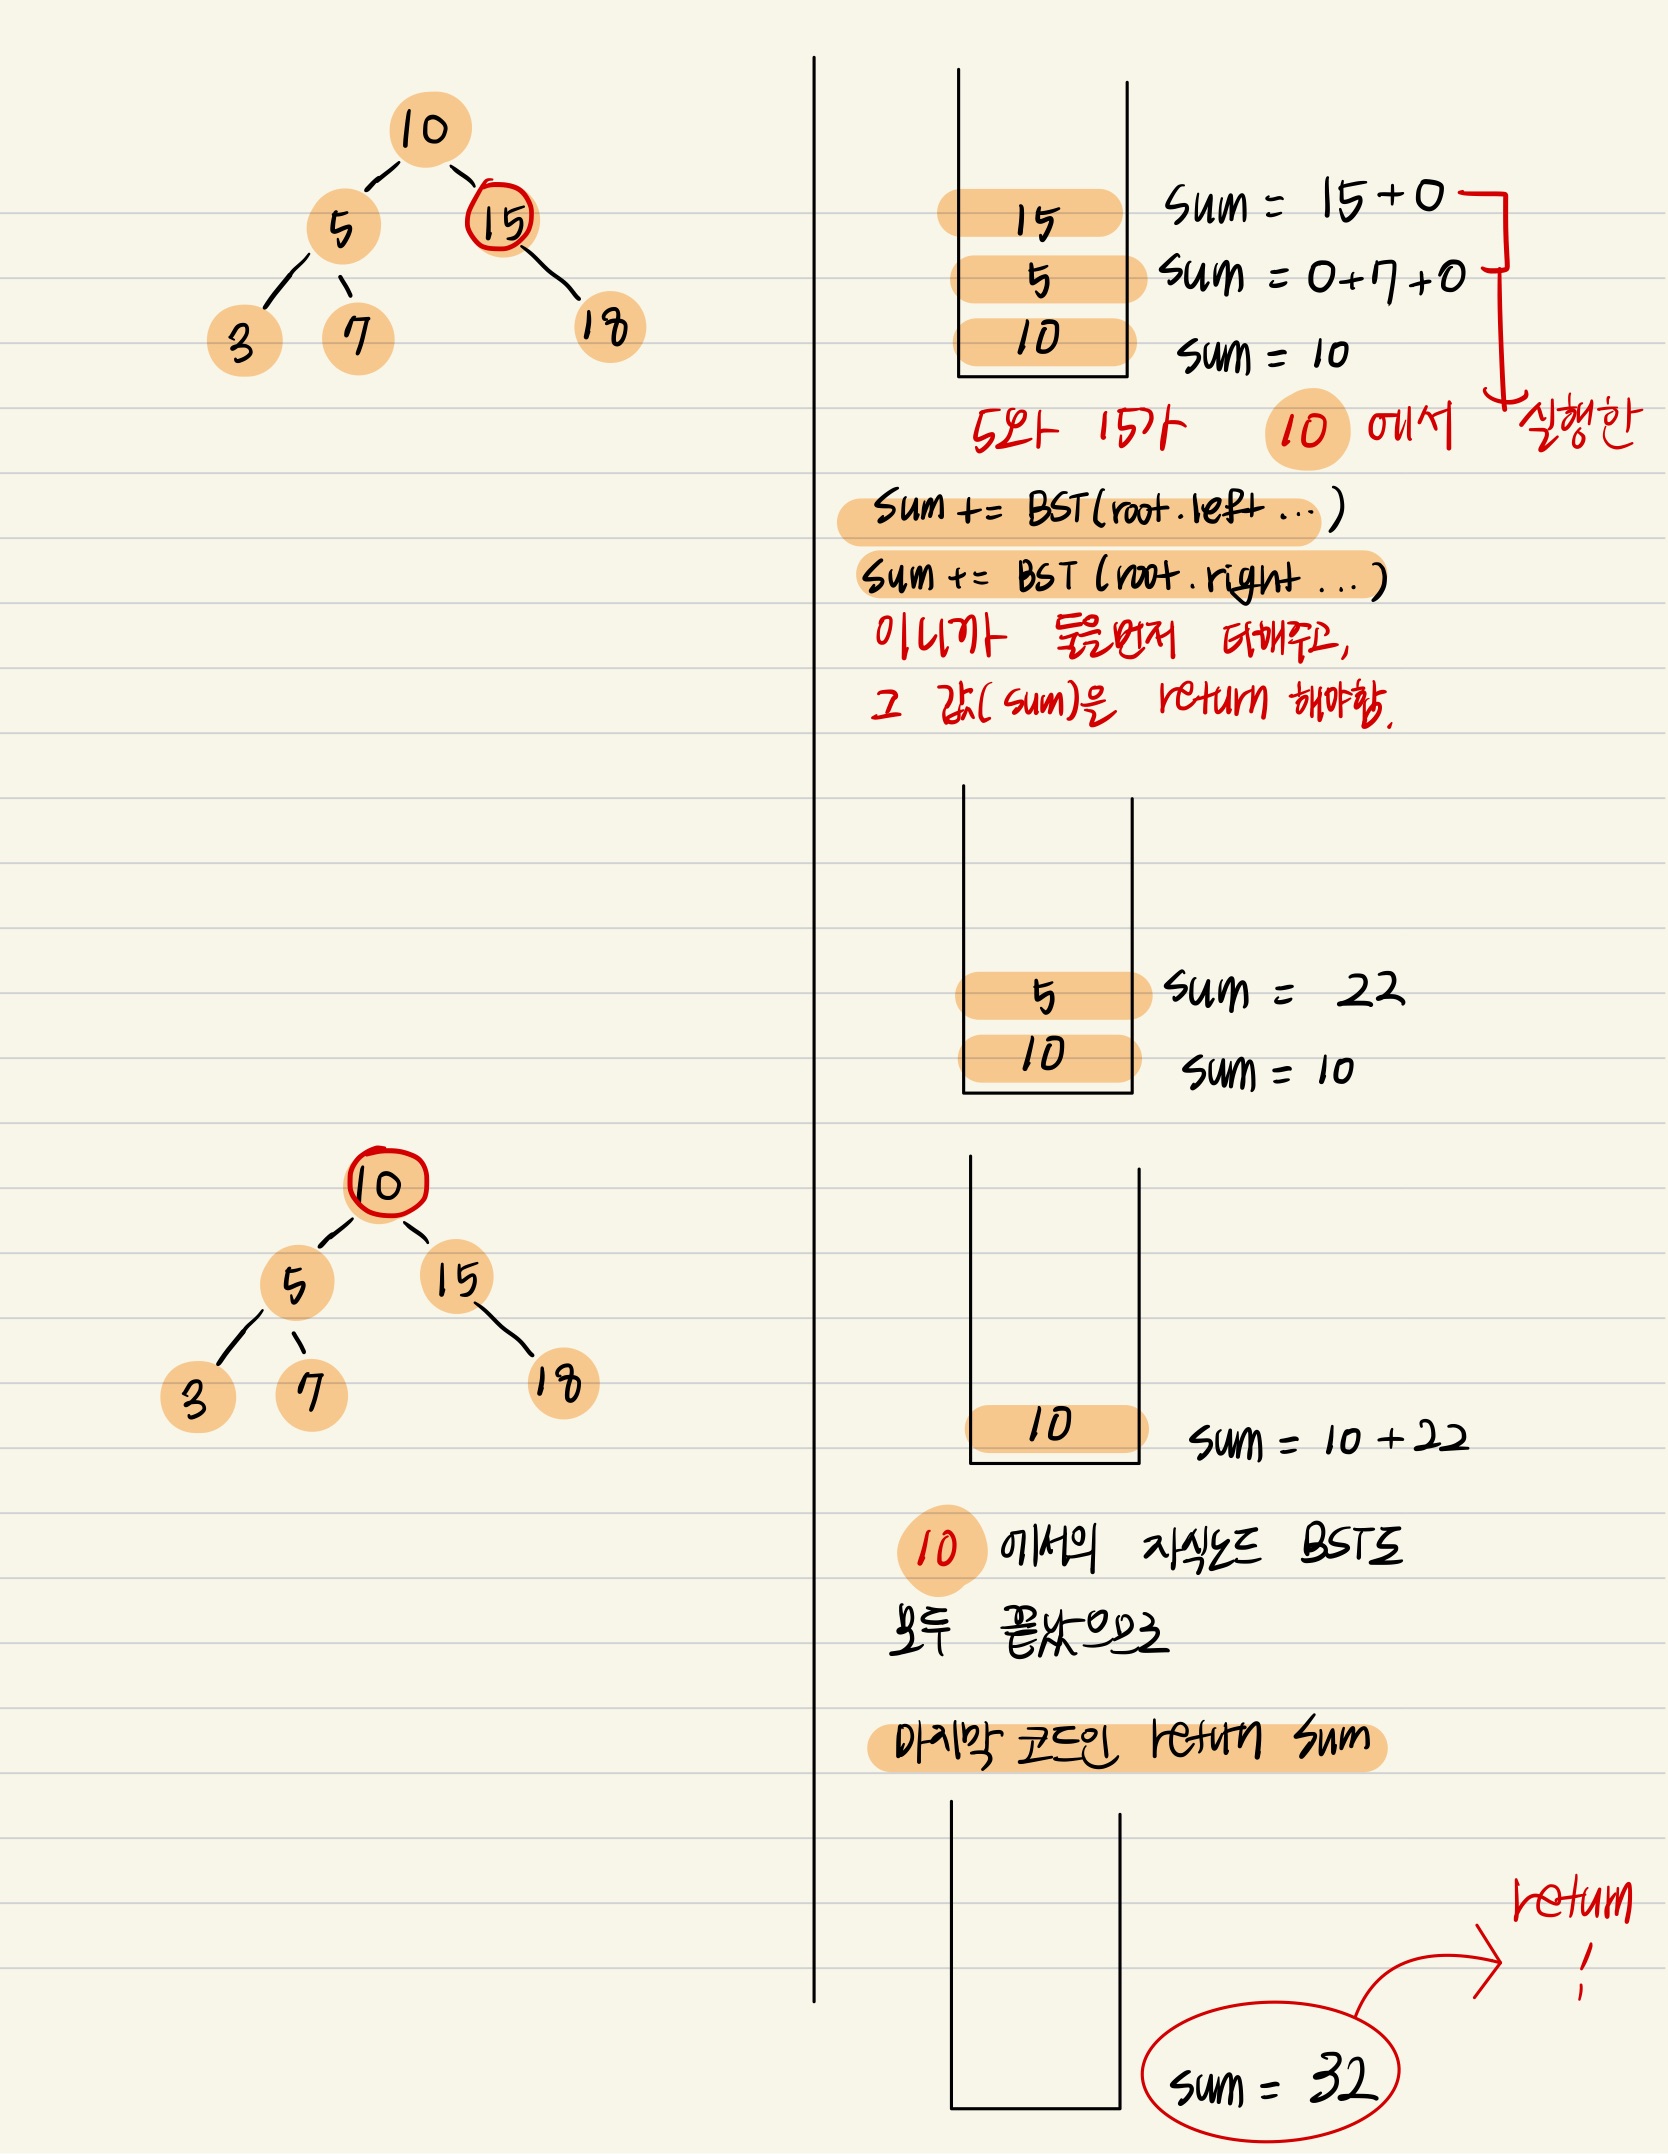 10
5 15
3 7 18
15 sum = 15+0
5 sum = 0+7+0
10 sum = 10
5와 15가 10 에서 실행한
sum += BST(root.left ...)
sum += BST (root.right ...)
이니까 둘을먼저 더해주고,
그 값(sum)을 return 해야함.
5 sum = 22
10 sum = 10
10
5 15
3 7 18
10 sum = 10 +22
10 에서의 자식노드 BST도
모두 끝났으므로
마지막 코드인 return sum
return
!
sum = 32